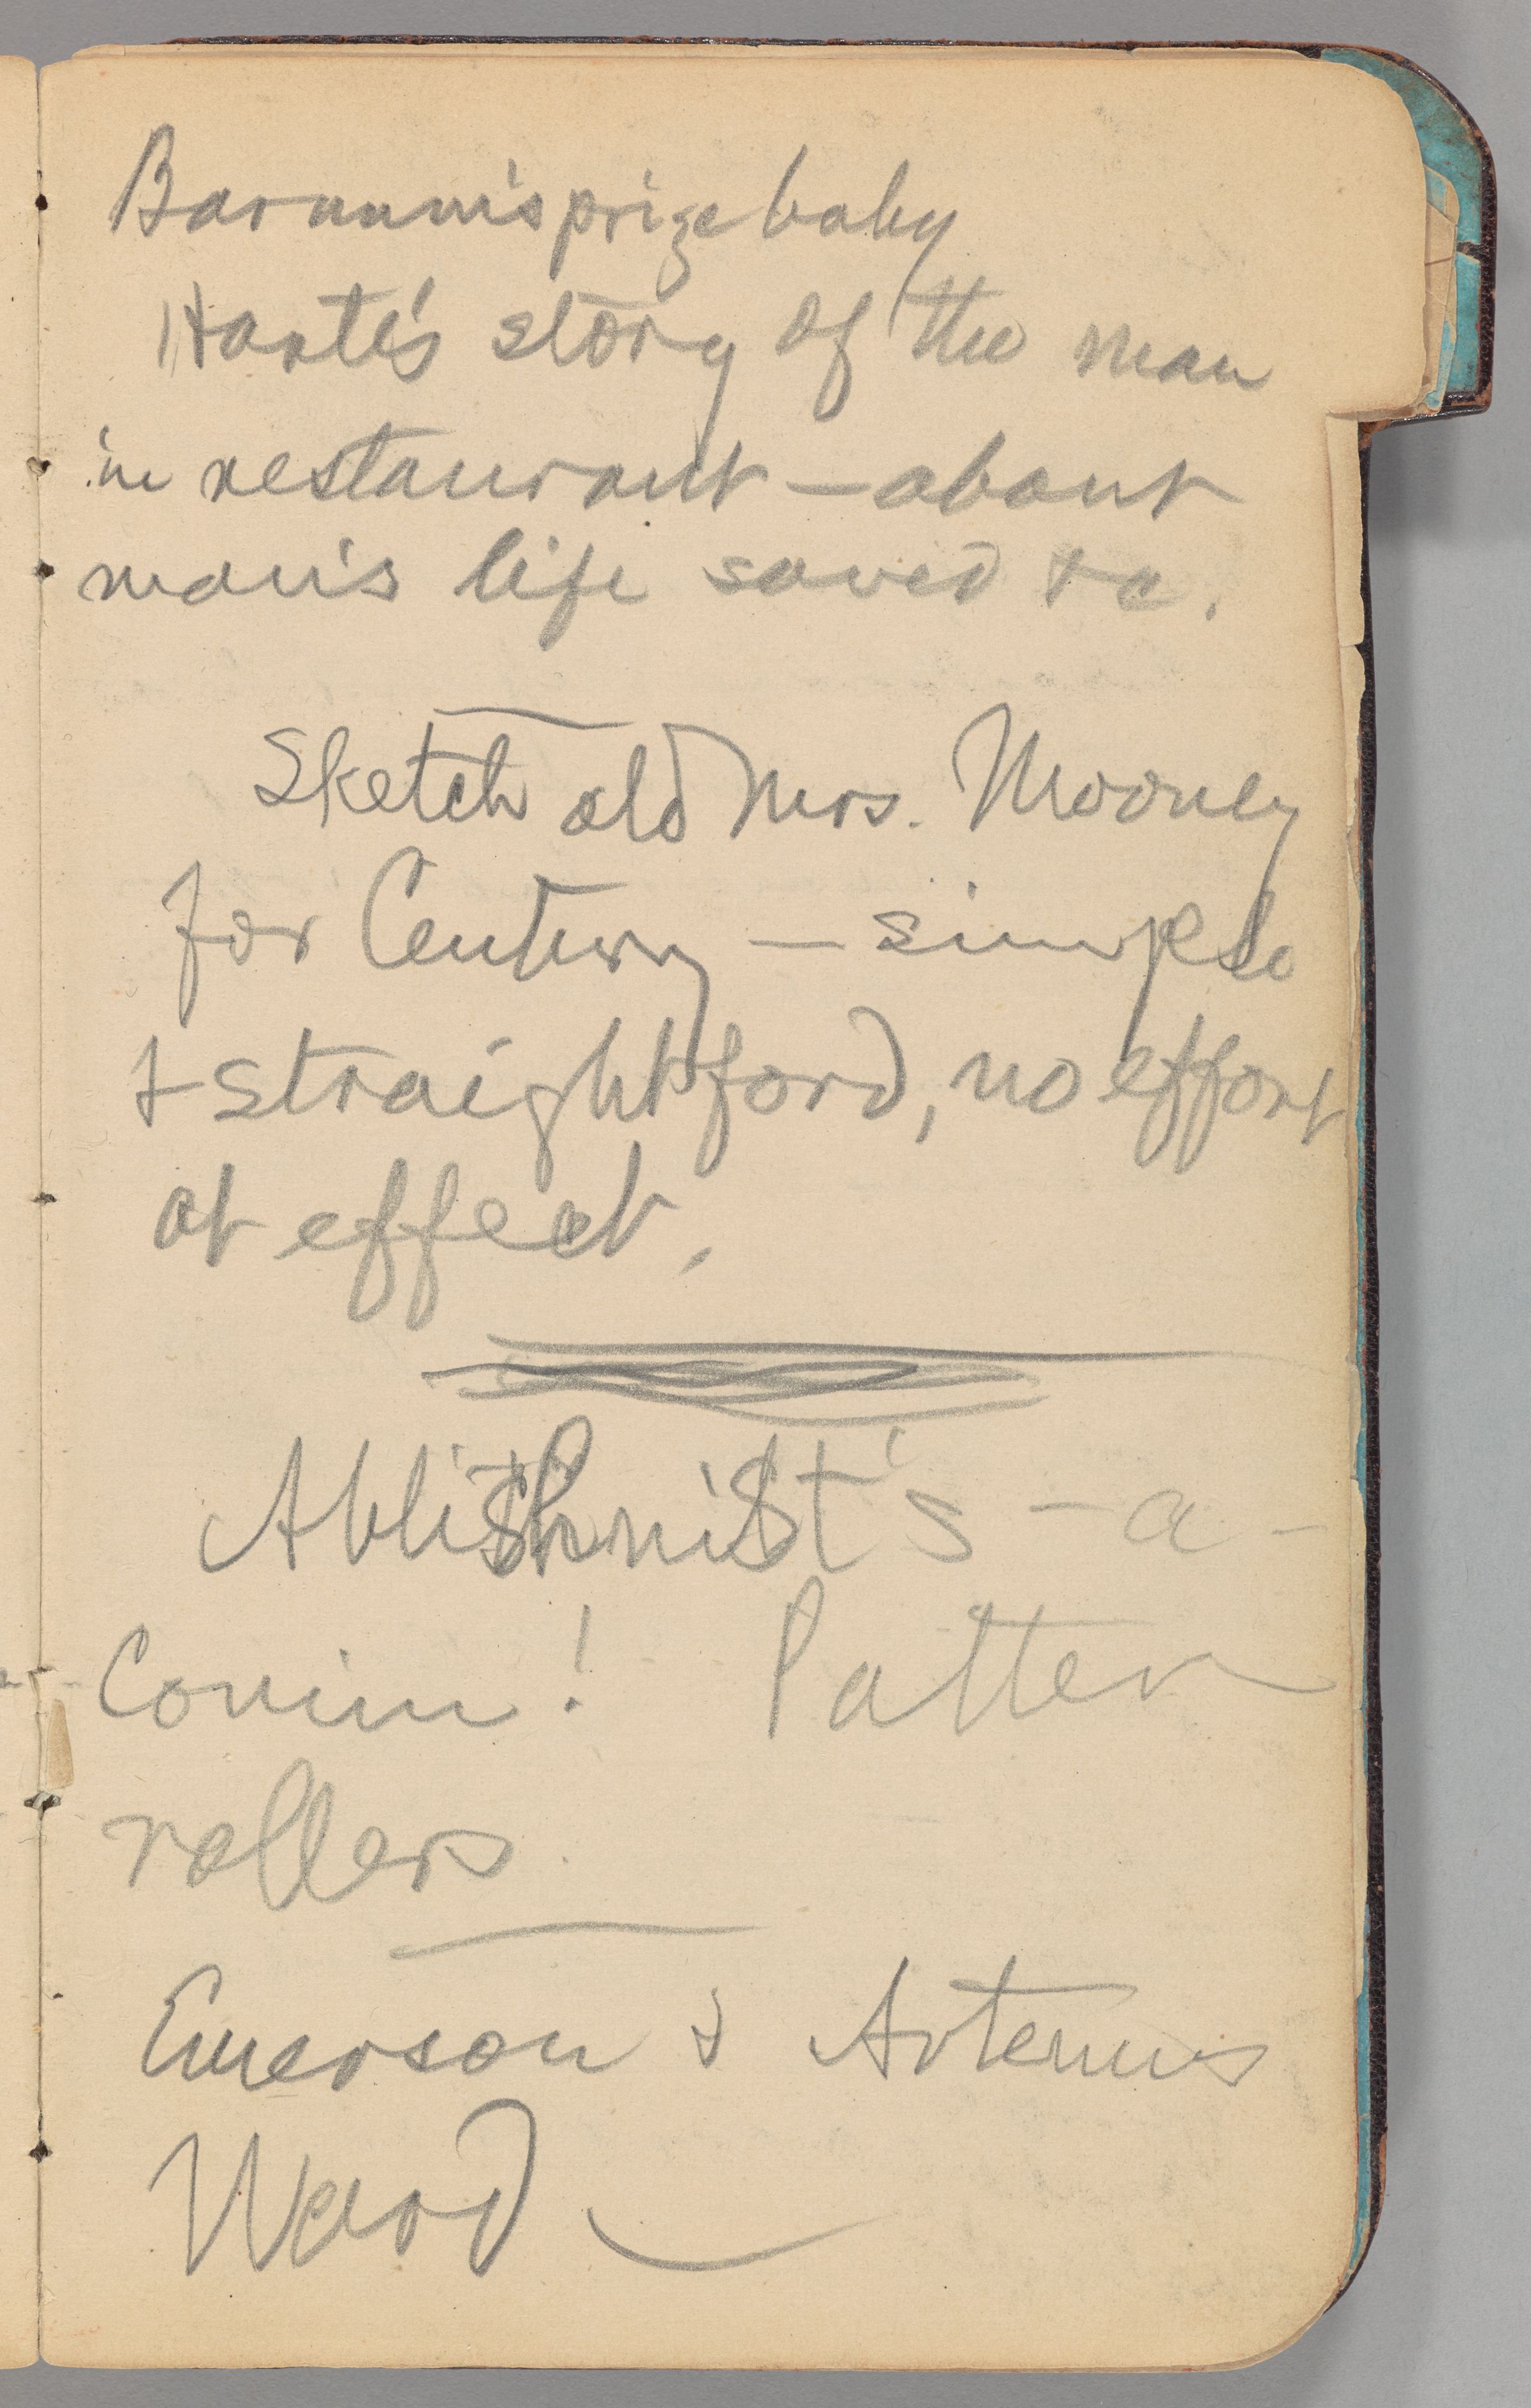 Barnum's prize baby
Harte's story of the man
in restaurant — about
man's life saved &c.
Sketch old Mrs. Mooney
for Century — simple
& straightford, no effort
at effect.
Ablishnist's - a -
comin! Patter
rollers
Emerson & Artemus
Ward